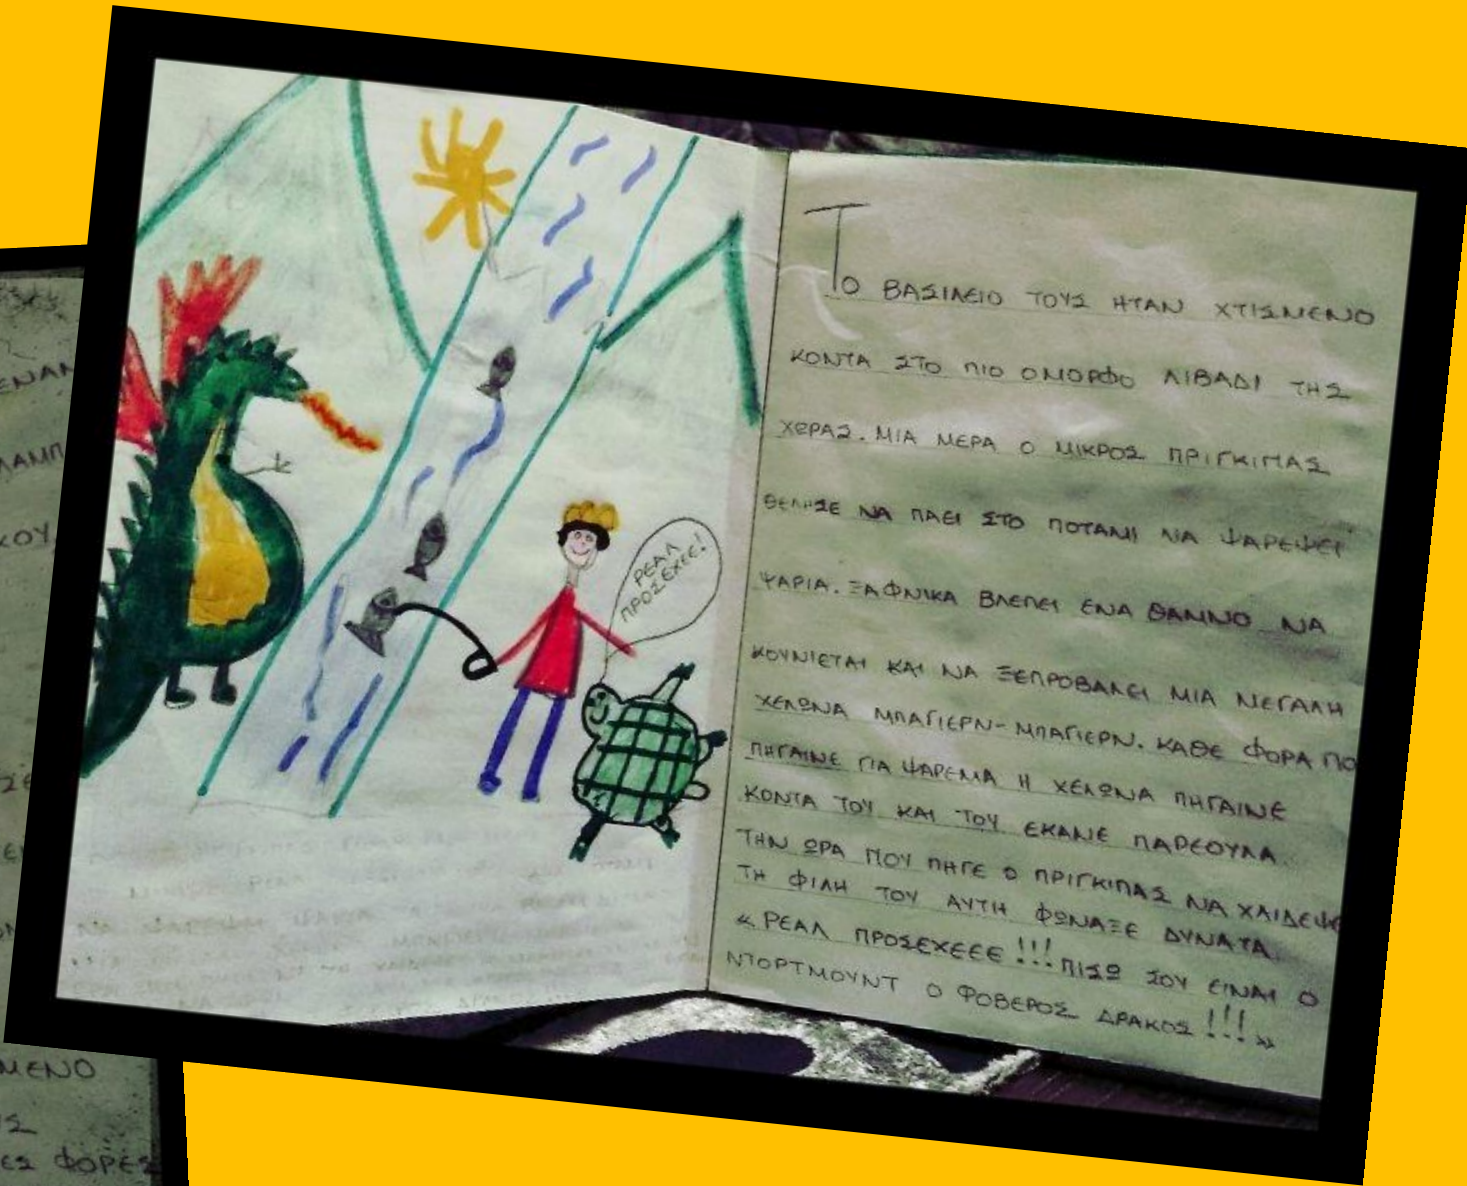 ΡΕΑΛ
ΠΡΟΣΕΧΕΕ!
ΤΟ ΒΑΣΙΛΕΙΟ ΤΟΥΣ ΗΤΑΝ ΧΤΙΣΜΕΝΟ
ΚΟΝΤΑ ΣΤΟ ΠΙΟ ΟΜΟΡΦΟ ΛΙΒΑΔΙ ΤΗΣ
ΧΩΡΑΣ. ΜΙΑ ΜΕΡΑ Ο ΜΙΚΡΟΣ ΠΡΙΓΚΙΠΑΣ
ΘΕΛΗΣΕ ΝΑ ΠΑΕΙ ΣΤΟ ΠΟΤΑΜΙ ΝΑ ΨΑΡΕΨΕΙ
ΨΑΡΙΑ. ΞΑΦΝΙΚΑ ΒΛΕΠΕΙ ΕΝΑ ΘΑΜΝΟ ΝΑ
ΚΟΥΝΙΕΤΑΙ ΚΑΙ ΝΑ ΞΕΠΡΟΒΑΛΕΙ ΜΙΑ ΜΕΓΑΛΗ
ΧΕΛΩΝΑ ΜΠΑΓΙΕΡΝ-ΜΠΑΓΙΕΡΝ. ΚΑΘΕ ΦΟΡΑ ΠΟ
ΠΗΓΑΙΝΕ ΓΙΑ ΨΑΡΕΜΑ Η ΧΕΛΩΝΑ ΠΗΓΑΙΝΕ
ΚΟΝΤΑ ΤΟΥ ΚΑΙ ΤΟΥ ΕΚΑΝΕ ΠΑΡΕΟΥΛΑ.
ΤΗΝ ΩΡΑ ΠΟΥ ΠΗΓΕ Ο ΠΡΙΓΚΙΠΑΣ ΝΑ ΧΑΙΔΕΨΕ
ΤΗ ΦΙΛΗ ΤΟΥ ΑΥΤΗ ΦΩΝΑΞΕ ΔΥΝΑΤΑ
« ΡΕΑΛ ΠΡΟΣΕΧΕΕΕ!!! ΠΙΣΩ ΣΟΥ ΕΙΝΑΙ Ο
ΝΤΟΡΤΜΟΥΝΤ Ο ΦΟΒΕΡΟΣ ΔΡΑΚΟΣ!!!»
ΜΕΝΟ
ΕΣ ΦΟΡΕΣ